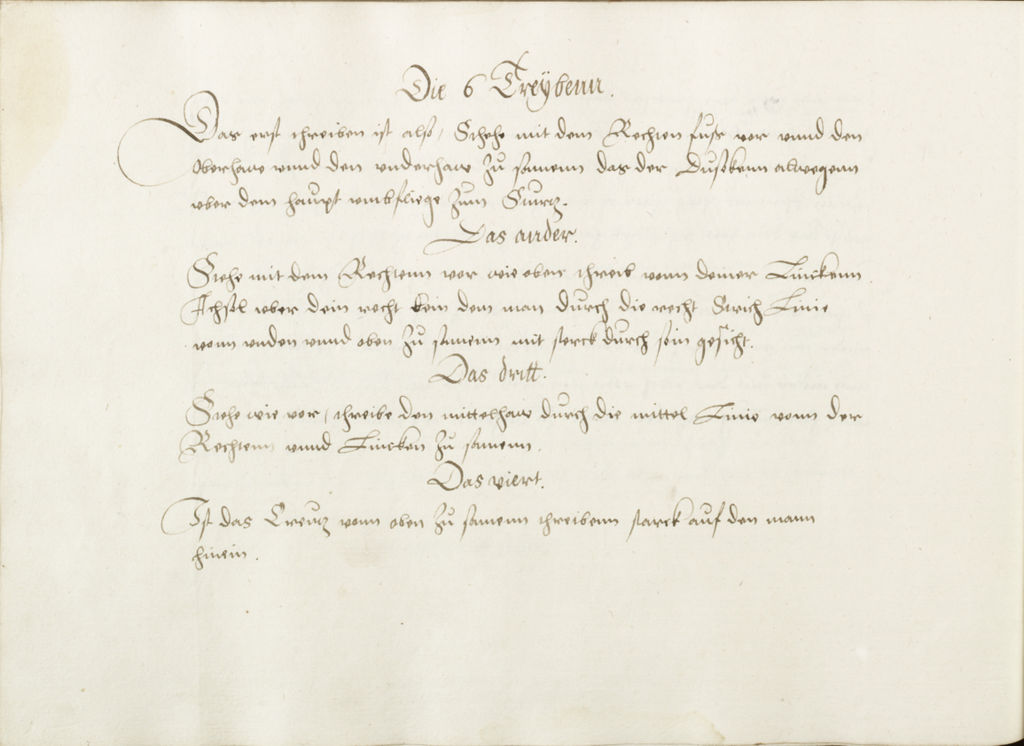 Die 6 Treÿbenn.
Das erst threiben ist also, Stehe mit dem Rechten fuss vor vnnd den
Oberhaw vnnd den vnderhaw zu samenn das der Dusskenn alwegenn
vber dem haupt vmbfliege zum Sturtz.
Das ander.
Stehe mit dem Rechtenn vor wie oben threib vonn deiner Linckenn
Achsel vber dein recht bein dem man durch die recht Strich Linie
vonn vnden vnnd oben zu samenn mit sterck durch sein gesicht.
Das dritt.
Stehe wie vor, threibe den mittelhaw durch die mittel Linie vonn der
Rechtenn vnnd Lincken zu samenn.
Das viert.
Ist das Creutz vonn oben zu samenn threibenn starck auf den mann
hinein.